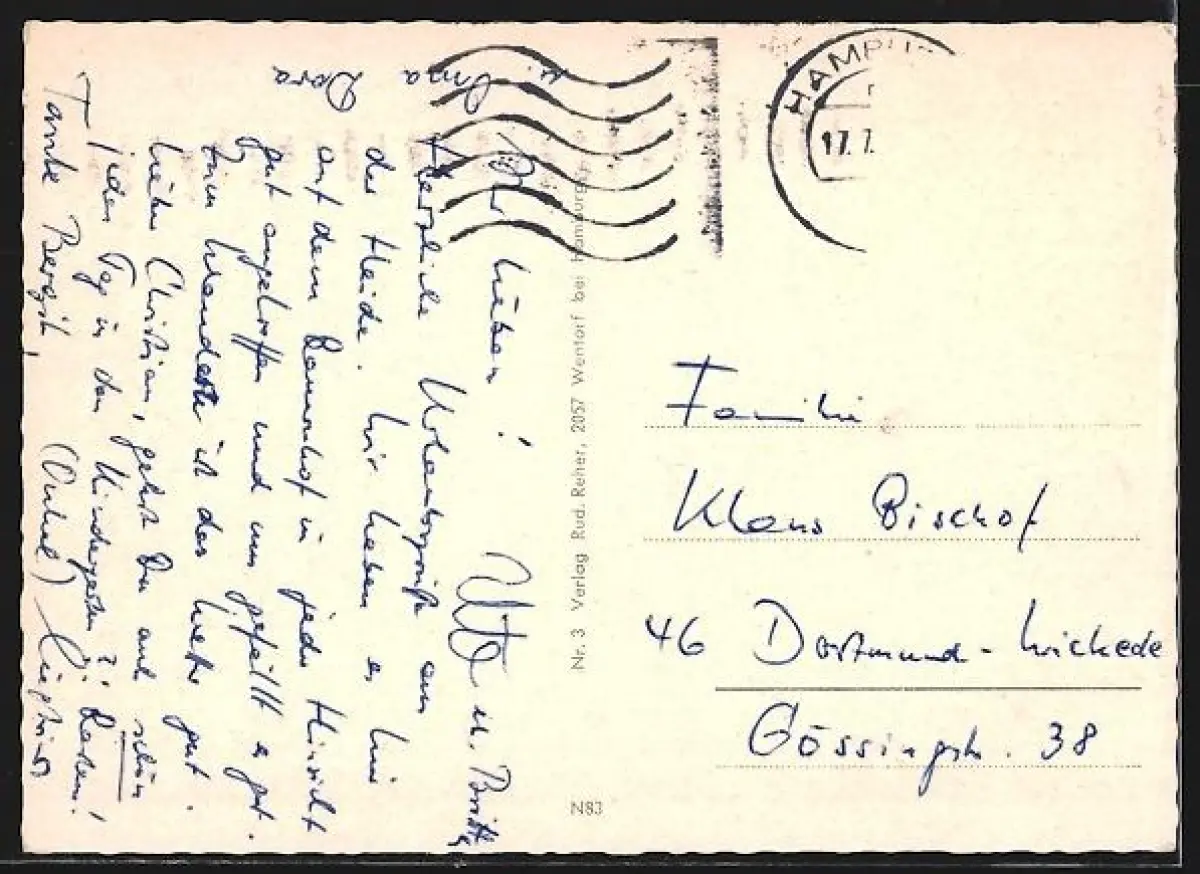 Ihr Lieben!
Herzliche Urlaubsgrüße aus
der Heide. Wir haben es hier
auf dem Bauernhof in jeder Hinsicht
gut angetroffen und uns gefällt es gut.
Für uns ist das Wetter gut.
Lieber Christian, gehst Du auch schön
jeden Tag in den Kindergarten??
Tante Bergit,
(Onkel)
Oma
Dora
Ute u. Britta
HAMBURG
17.7.
Nr. 3 Verlag Rud. Reher, 2057 Wentorf bei Hamburg
N83
Familie
Klaus Bischof
46 Dortmund-Wickede
Gössingstr. 38